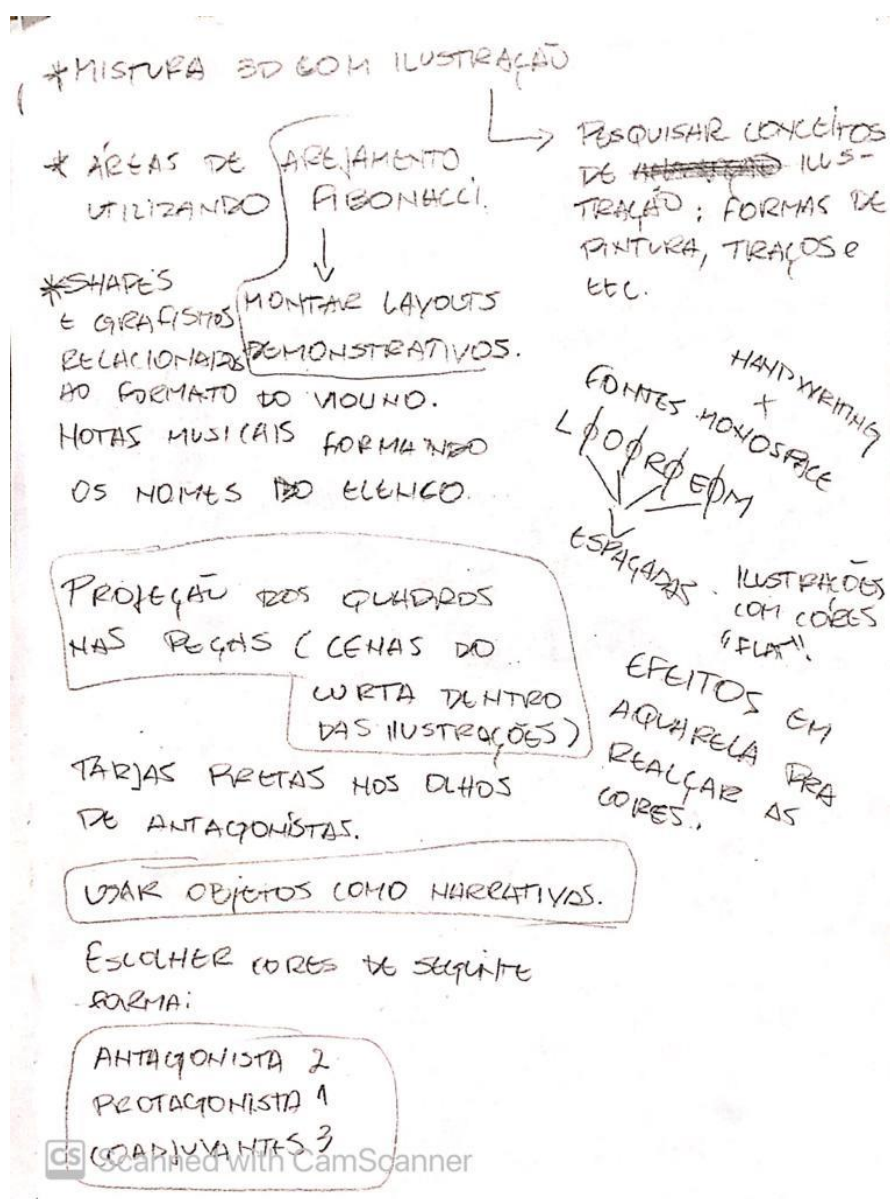 *MISTURA 3D COM ILUSTRAÇÃO
PESQUISAR CONCEITOS
DE ILUS-
TRAÇÃO; FORMAS DE
PINTURA, TRAÇOS e
ETC.
* ÁREAS DE AREJAMENTO
UTILIZANDO FIBONACCI.
MONTAR LAYOUTS
DEMONSTRATIVOS.
*SHAPES
E GRAFISMOS
RELACIONADOS
AO FORMATO DO VIOLINO.
NOTAS MUSICAIS FORMANDO
OS NOMES DO ELENCO.
HANDWRITING
+
FONTES MONOSPACE
ESPAÇADAS
ILUSTRAÇÕES
COM CORES
"FLAT".
EFEITOS EM
AQUARELA PRA
REALÇAR AS
CORES.
PROJEÇÃO DOS QUADROS
NAS PEÇAS (CENAS DO
CURTA DENTRO
DAS ILUSTRAÇÕES)
TARJAS PRETAS NOS OLHOS
DE ANTAGONISTAS.
USAR OBJETOS COMO NARRATIVAS.
ESCOLHER CORES DE SEGUINTE
FORMA:
ANTAGONISTA 2
PROTAGONISTA 1
COADJUVANTES 3
CS Scanned with CamScanner